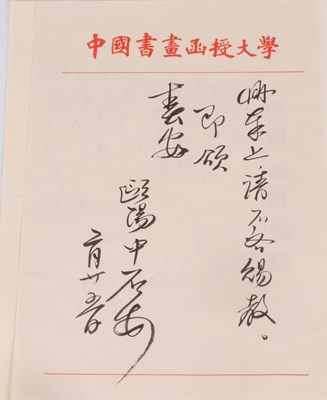 中國書畫函授大學
奉上，請不吝賜教。
即頌
春安
歐陽中石
二月廿五日